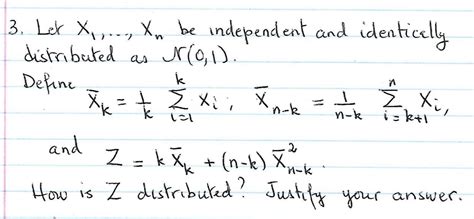 3. Let X₁, ..., Xₙ be independent and identically
distributed as N(0,1).
Define X̄ₖ = 1/k Σᵢ₌₁ᵏ Xᵢ, X̄ₙ₋ₖ = 1/(n-k) Σᵢ₌ₖ₊₁ⁿ Xᵢ,
and Z = k X̄ₖ + (n-k) X̄²ₙ₋ₖ.
How is Z distributed? Justify your answer.